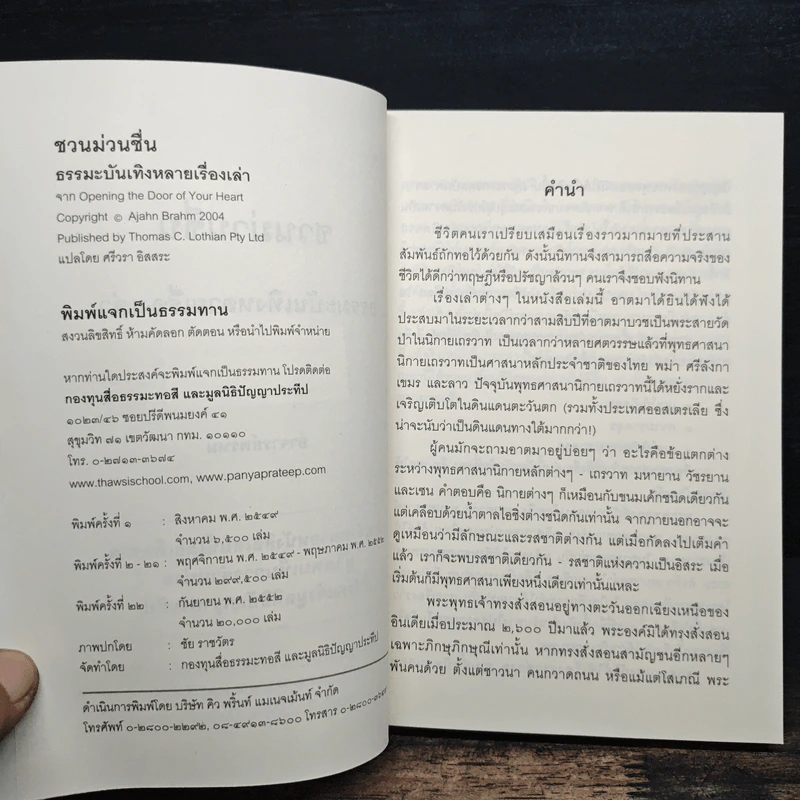 ชวนม่วนชื่น
ธรรมะบันเทิงหลายเรื่องเล่า
จาก Opening the Door of Your Heart
Copyright © Ajahn Brahm 2004
Published by Thomas C. Lothian Pty Ltd
แปลโดย ศรีวรา อิสสระ
พิมพ์แจกเป็นธรรมทาน
สงวนลิขสิทธิ์ ห้ามคัดลอก ตัดตอน หรือนำไปพิมพ์จำหน่าย
หากท่านใดประสงค์จะพิมพ์แจกเป็นธรรมทาน โปรดติดต่อ
กองทุนสื่อธรรมะทอสี และมูลนิธิปัญญาประทีป
๑๐๒๓/๔๖ ซอยปรีดีพนมยงค์ ๔๑
สุขุมวิท ๗๑ เขตวัฒนา กทม. ๑๐๑๑๐
โทร. ๐-๒๗๑๓-๓๖๗๔
www.thawsischool.com, www.panyaprateep.com
พิมพ์ครั้งที่ ๑ : สิงหาคม พ.ศ. ๒๕๔๙
จำนวน ๖,๕๐๐ เล่ม
พิมพ์ครั้งที่ ๒ - ๒๑ : พฤศจิกายน พ.ศ. ๒๕๔๙ - พฤษภาคม พ.ศ. ๒๕๕๒
จำนวน ๒๙๙,๕๐๐ เล่ม
พิมพ์ครั้งที่ ๒๒ : กันยายน พ.ศ. ๒๕๕๒
จำนวน ๒๐,๐๐๐ เล่ม
ภาพปกโดย : ชัย ราชวัตร
จัดทำโดย : กองทุนสื่อธรรมะทอสี และมูลนิธิปัญญาประทีป
ดำเนินการพิมพ์โดย บริษัท คิว พริ้นท์ แมเนจเม้นท์ จำกัด
โทรศัพท์ ๐-๒๘๐๐-๒๒๙๒, ๐๘-๔๙๑๓-๘๖๐๐ โทรสาร
คำนำ
ชีวิตคนเราเปรียบเสมือนเรื่องราวมากมายที่ประสาน
สัมพันธ์ถักทอไว้ด้วยกัน ดังนั้นนิทานจึงสามารถสื่อความจริงของ
ชีวิตได้ดีกว่าทฤษฎีหรือปรัชญาล้วนๆ คนเราจึงชอบฟังนิทาน
เรื่องเล่าต่างๆ ในหนังสือเล่มนี้ อาตมาได้ยินได้ฟังได้
ประสบมาในระยะเวลากว่าสามสิบปีที่อาตมาบวชเป็นพระสายวัด
ป่าในนิกายเถรวาท เป็นเวลากว่าหลายศตวรรษแล้วที่พุทธศาสนา
นิกายเถรวาทเป็นศาสนาหลักประจำชาติของไทย พม่า ศรีลังกา
เขมร และลาว ปัจจุบันพุทธศาสนานิกายเถรวาทนี้ได้หยั่งรากและ
เจริญเติบโตในดินแดนตะวันตก (รวมทั้งประเทศออสเตรเลีย ซึ่ง
น่าจะนับว่าเป็นดินแดนทางใต้มากกว่า!)
ผู้คนมักจะถามอาตมาอยู่บ่อยๆ ว่า อะไรคือข้อแตกต่าง
ระหว่างพุทธศาสนานิกายหลักต่างๆ - เถรวาท มหายาน วัชรยาน
และเซน คำตอบคือ นิกายต่างๆ ก็เหมือนกับขนมเค้กชนิดเดียวกัน
แต่เคลือบด้วยน้ำตาลไอซิ่งต่างชนิดกันเท่านั้น จากภายนอกอาจจะ
ดูเหมือนว่ามีลักษณะและรสชาติต่างกัน แต่เมื่อกัดลงไปเต็มคำ
แล้ว เราก็จะพบรสชาติเดียวกัน - รสชาติแห่งความเป็นอิสระ เมื่อ
เริ่มต้นก็มีพุทธศาสนาเพียงหนึ่งเดียวเท่านั้นแหละ
พระพุทธเจ้าทรงสั่งสอนอยู่ทางตะวันออกเฉียงเหนือของ
อินเดียเมื่อประมาณ ๒,๖๐๐ ปีมาแล้ว พระองค์มิได้ทรงสั่งสอน
เฉพาะภิกษุภิกษุณีเท่านั้น หากทรงสั่งสอนสามัญชนอีกหลายๆ
พันคนด้วย ตั้งแต่ชาวนา คนกวาดถนน หรือแม้แต่โสเภณี พระ